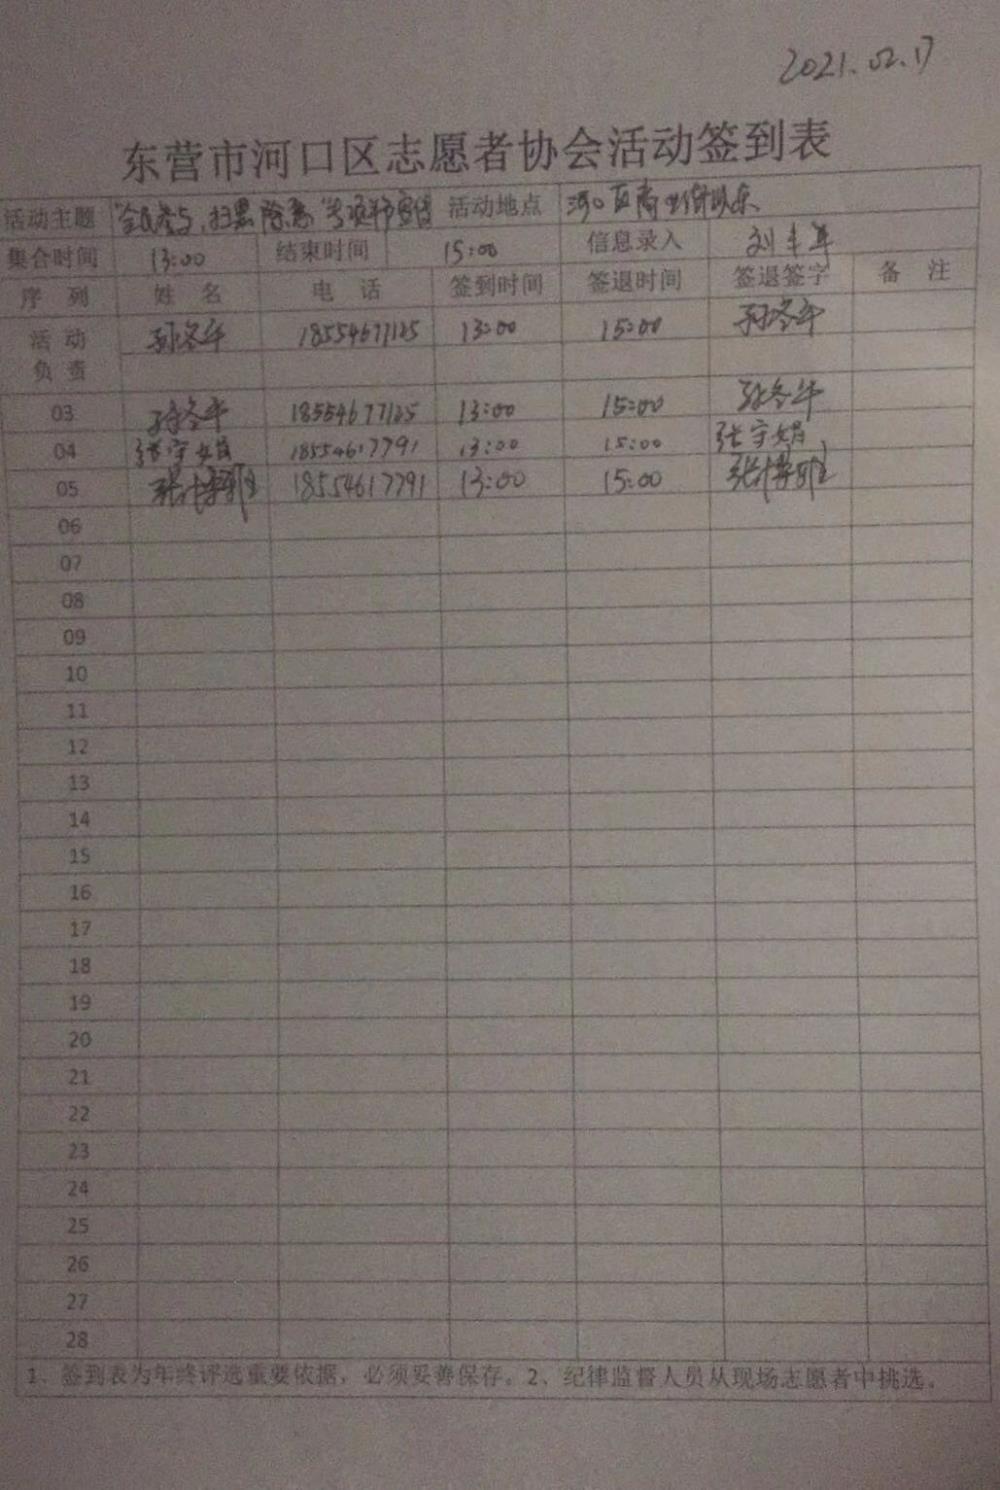 2021.02.17
东营市河口区志愿者协会活动签到表
活动主题 "全民参与,扫黑除恶" 活动地点 河口区
集合时间 13:00 结束时间 15:00 信息录入
序 列 姓 名 电 话 签到时间 签退时间 签退签字 备 注
活 动 负 责 孙冬午 18554677125 13:00 15:00 孙冬午
03 孙冬午 18554677125 13:00 15:00 孙冬午
04 张宇娟 18554617791 13:00 15:00 张宇娟
05 18554617791 13:00 15:00
06
07
08
09
10
11
12
13
14
15
16
17
18
19
20
21
22
23
24
25
26
27
28
1、签到表为年终评选重要依据，必须妥善保存。2、纪律监督人员从现场志愿者中挑选。